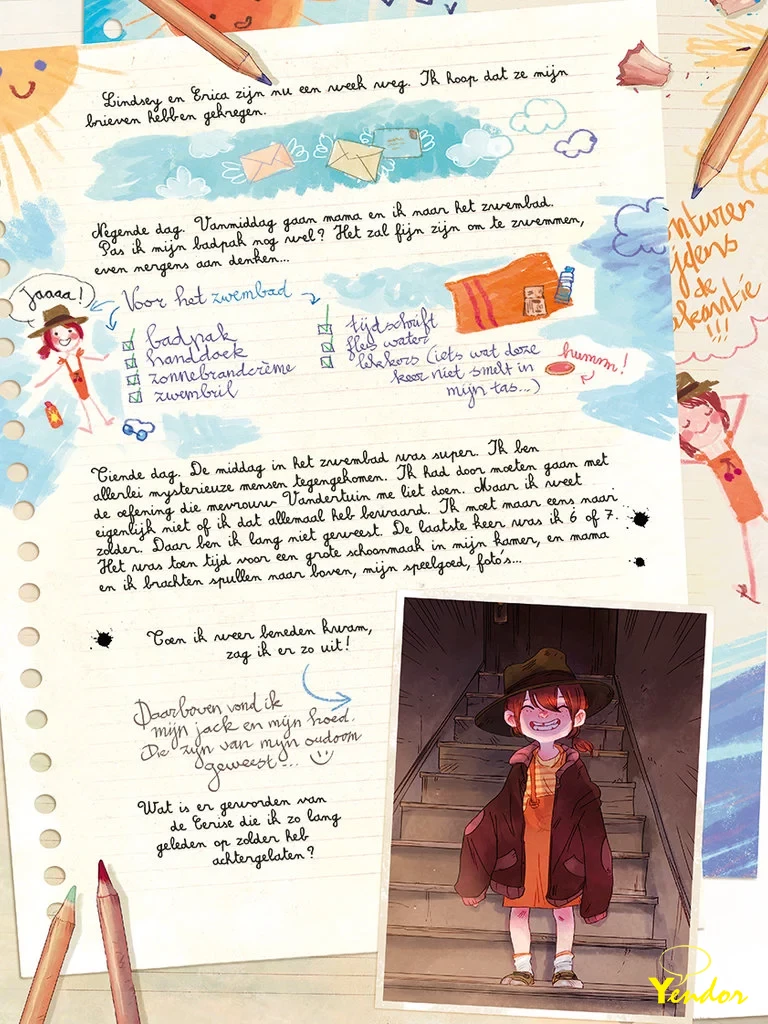 Lindsey en Erica zijn nu een week weg. Ik hoop dat ze mijn
brieven hebben gekregen.
Negende dag. Vanmiddag gaan mama en ik naar het zwembad.
Pas ik mijn badpak nog wel? Het zal fijn zijn om te zwemmen,
even nergens aan denken...
Jaaaa!
Voor het zwembad
badpak
handdoek
zonnebrandcrème
zwembril
tijdschrift
fles water
lekkers (iets wat deze
keer niet smelt in
mijn tas...)
humm!
nturen
ijdens
de
akantie
!!!
Tiende dag. De middag in het zwembad was super. Ik ben
allerlei mysterieuze mensen tegengekomen. Ik had door moeten gaan met
de oefening die mevrouw Vandertuin me liet doen. Maar ik weet
eigenlijk niet of ik dat allemaal heb bewaard. Ik moet maar eens naar
zolder. Daar ben ik lang niet geweest. De laatste keer was ik 6 of 7.
Het was toen tijd voor een grote schoonmaak in mijn kamer, en mama
en ik brachten spullen naar boven, mijn speelgoed, foto's...
Toen ik weer beneden kwam,
zag ik er zo uit!
Daarboven vond ik
mijn jack en mijn hoed.
Die zijn van mijn oudoom
geweest...
Wat is er geworden van
de Cerise die ik zo lang
geleden op zolder heb
achtergelaten?
Yendor